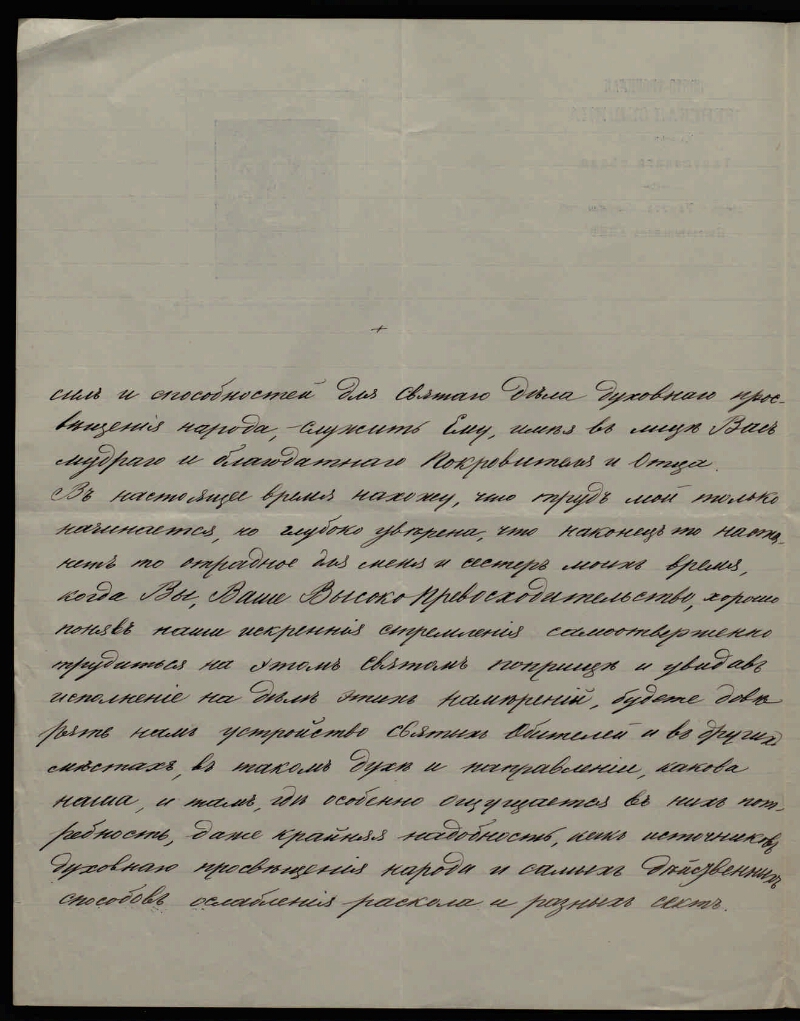 силъ и способностей для святаго дѣла духовнаго прос-
вѣщенія народа, служить Ему, имѣя въ лицѣ Васъ
мудраго и благодатнаго Покровителя и Отца.
Въ настоящее время нахожу, что трудъ мой только
начинается, но глубоко увѣрена, что наконецъ то наста-
нетъ то отрадное для меня и сестеръ моихъ время,
когда Вы, Ваше Высокопревосходительство, хорошо
понявъ наши искреннія стремленія самоотверженно
трудиться на этомъ святомъ поприщѣ и увидавъ
исполненіе на дѣлѣ этихъ намѣреній, будете довѣ
рять намъ устройство святыхъ Обителей и въ другихъ
мѣстахъ, въ такомъ духѣ и направленіи, какова
наша, и тамъ, гдѣ особенно ощущается въ нихъ пот-
ребность, даже крайняя надобность, какъ источниковъ
духовнаго просвѣщенія народа и самыхъ дѣйственныхъ
способовъ ослабленія раскола и разныхъ сектъ.